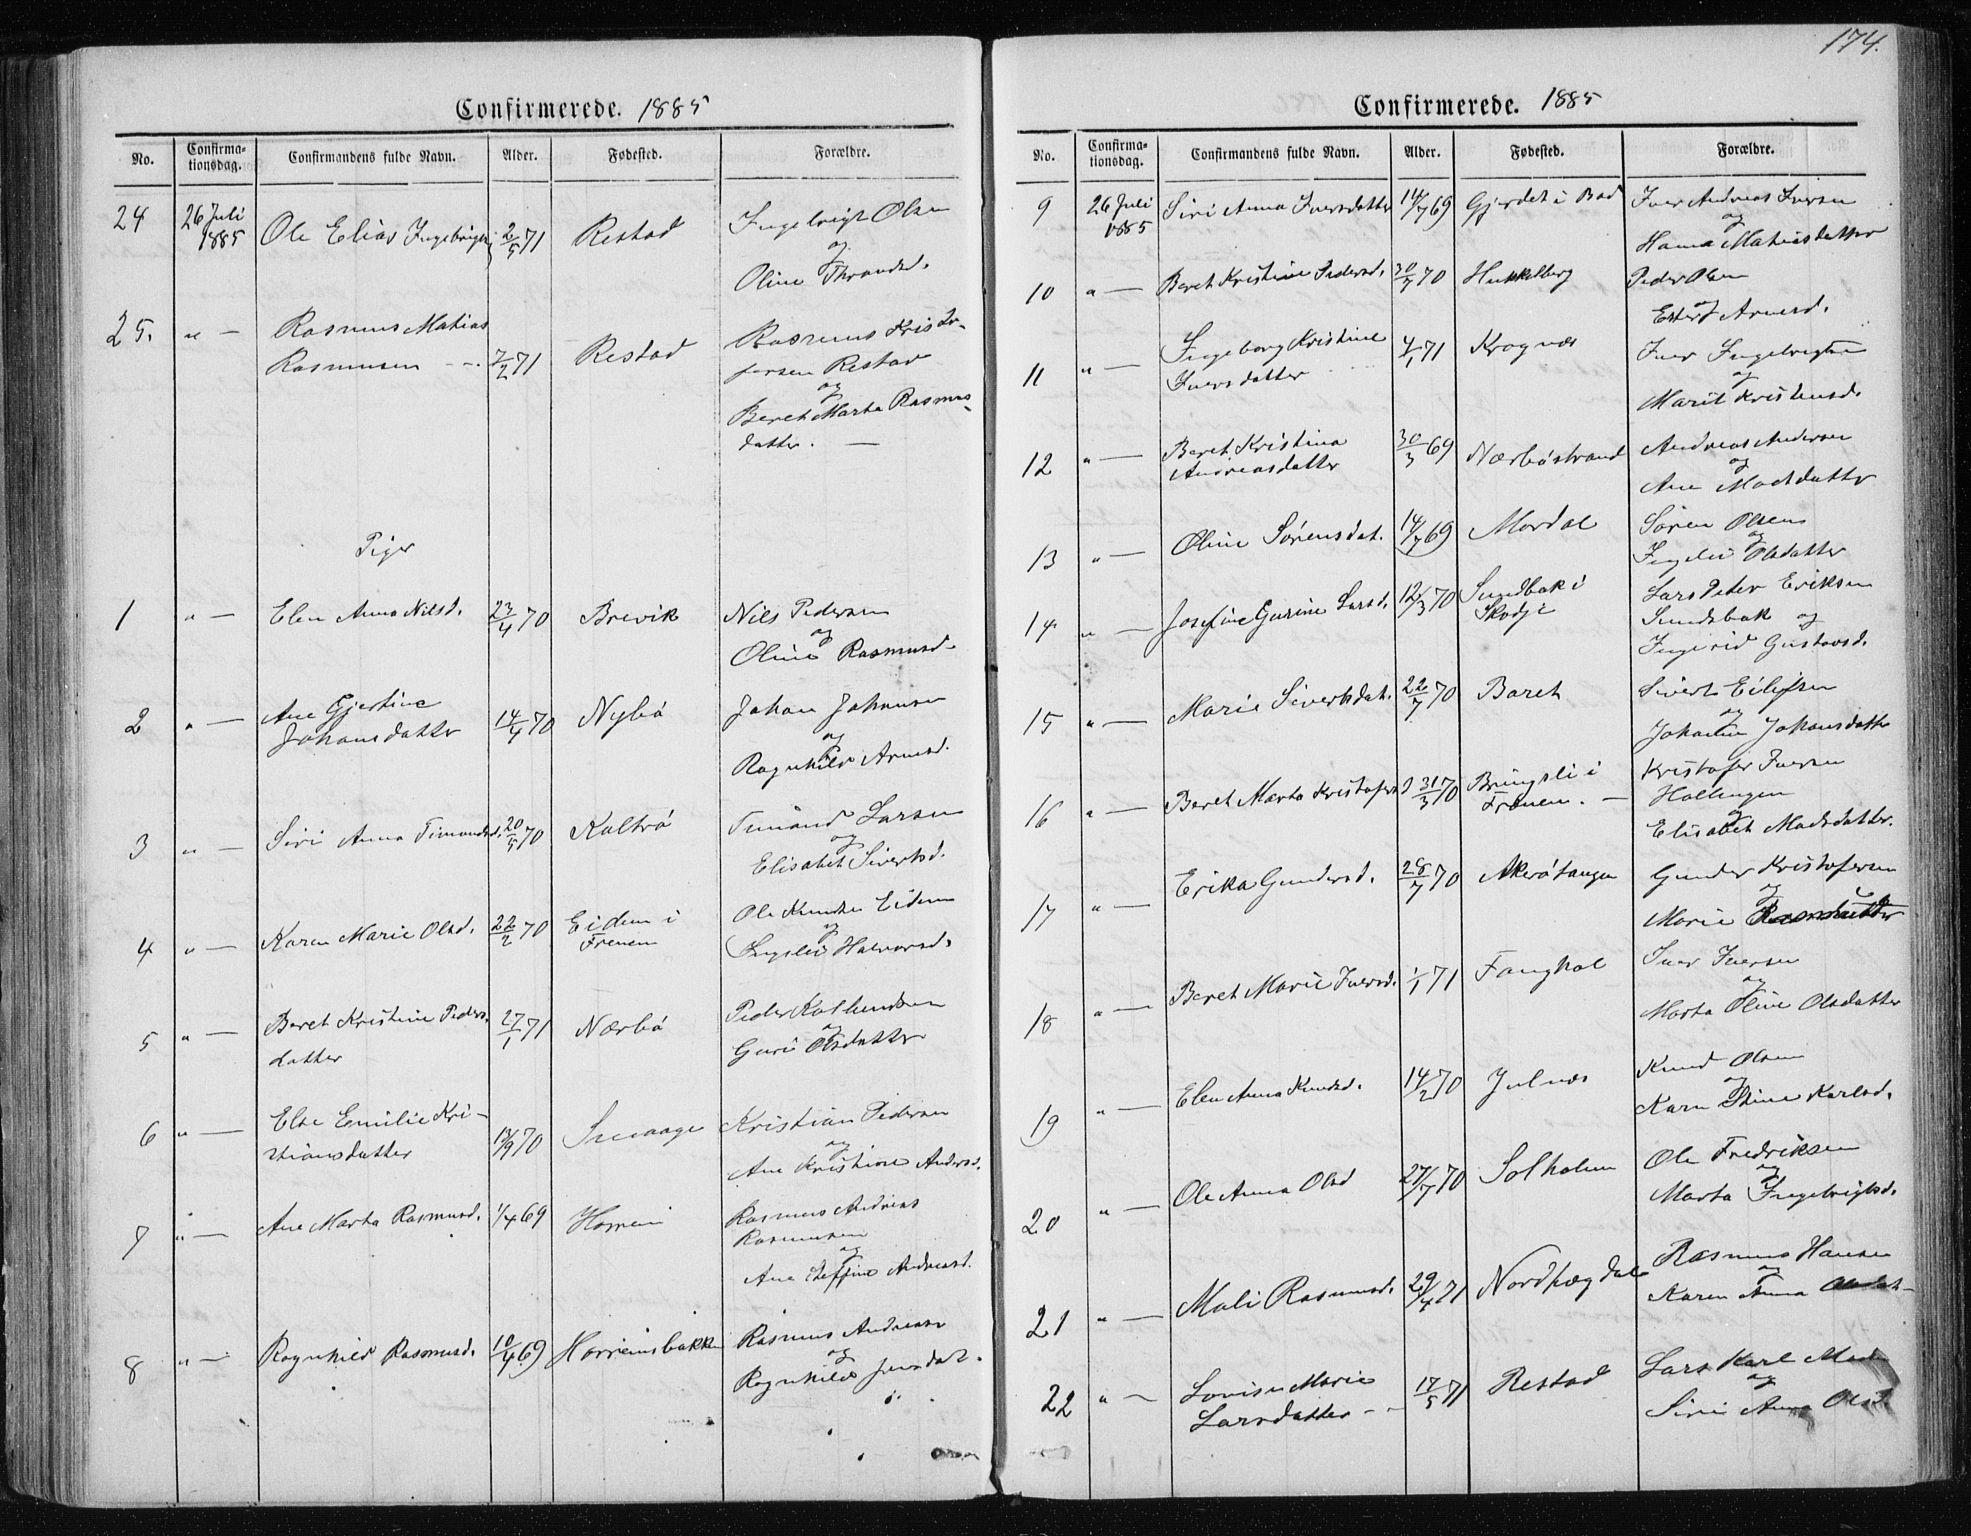 174.
Confirmerede. 1885
No. Confirmationsdag. Confirmandens fulde Navn. Alder. Fødested. Forældre.
24 26 Juli 1885 Ole Elias Ingebrigts 2/5 71 Restad Ingebrigt Olsen
og
Oline Throndsd.
25. " — Rasmus Matias
Rasmussen 7/2 71 Restad Rasmus Kristo-
fersen Restad
og
Beret Marta Rasmus
datter. —
Piger
1 " — Elen Anna Nilsd. 23/4 70 Brevik Nils Pedersen
og
Oline Rasmusd.
2 " — Ane Gjertine
Johansdatter 14/4 70 Nybø Johan Johansen
og
Ragnhild Arnesd.
3 " — Siri Anna Timandsd. 20/5 70 Kaltrø Timand Larsen
og
Elisabet Sivertsd.
4 " — Karen Marie Olsd. 22/2 70 Eidem i
Frenen Ole Knudsen Eidem
og
Ingelei Halvorsd.
5 " — Beret Kristine Peders
datter 27/1 71 Nærbø Peder
og
Guri Olsdatter
6 " — Else Emilie Kri-
stiansdatter 13/9 70 Kristian Pedersen
og
Ane Kristine Andersd.
7 " — Ane Marta Rasmusd. 1/4 69 Horrem Rasmus Andreas
Rasmussen
og
Ane Andreasd.
8 " — Ragnhild Rasmusd. 10/4 69 Horreimsbakken Rasmus Andreasen
og
Ragnhild Jensdat.
Confirmerede. 1885
No. Confirmationsdag. Confirmandens fulde Navn. Alder. Fødested. Forældre.
9 26 Juli 1885 Siri Anna Iversdatter 14/7 69 Gjerdet i Bod Iver Andreas Iversen
og
Hanna Matiasdatter
10 " — Beret Kristine Pedersd. 30/7 70 Hukkelberg Peder Olsen
og
Ester Arnesd.
11 " — Ingeborg Kristine
Iversdatter 4/1 71 Kragnes Iver Ingebrigtsen
og
Marit Kristensd.
12 " — Beret Kristina
Andreasdatter 30/3 69 Nærbøstrand Andreas Andersen
og
Ane Madsdatter
13 " — Oline Sørensdat. 14/7 69 Mordal Søren Olsen
og
Ingelei Olsdatter
14 " — Josefine Gurine Larsd. 12/3 70 Sundbak i
Skodje Lars Peter Eriksen
Sundsbak og
Ingerid Gustavsd.
15 " — Marie Sivertsdat. 22/7 70 Baret Sivert Eilefsen
og
Johanne Johansdatter
16 " — Beret Marta Kristofers d 31/3 70 Bringsli i
Frenen. — Kristofer Iversen
Hollingen
og
Elisabet Madsdatter.
17 " — Erika Gundersd. 28/7 70 Akerøtangen Gunder Kristofersen
og
Marie
18 " — Beret Marie Iversd. 1/1 71 Fanghol Iver Iversen
og
Marta Oline Olsdatter
19 " — Elen Anna Knudsd. 14/2 70 Julnes Knud Olsen
og
Karn Stine Karlsd.
20 " — Ole Anna Olsd 27/7 70 Solholmen Ole Fredriksen
og
Marta Ingebrigtsd.
21 " — Mali Rasmusd. 29/4 71 Nordhægdal Rasmus Hansen
og
Karen Anna Olsdat
22 " — Lovise Marie
Larsdatter 17/5 71 Restad Lars Karl
og
Sirie Anna Olsd.